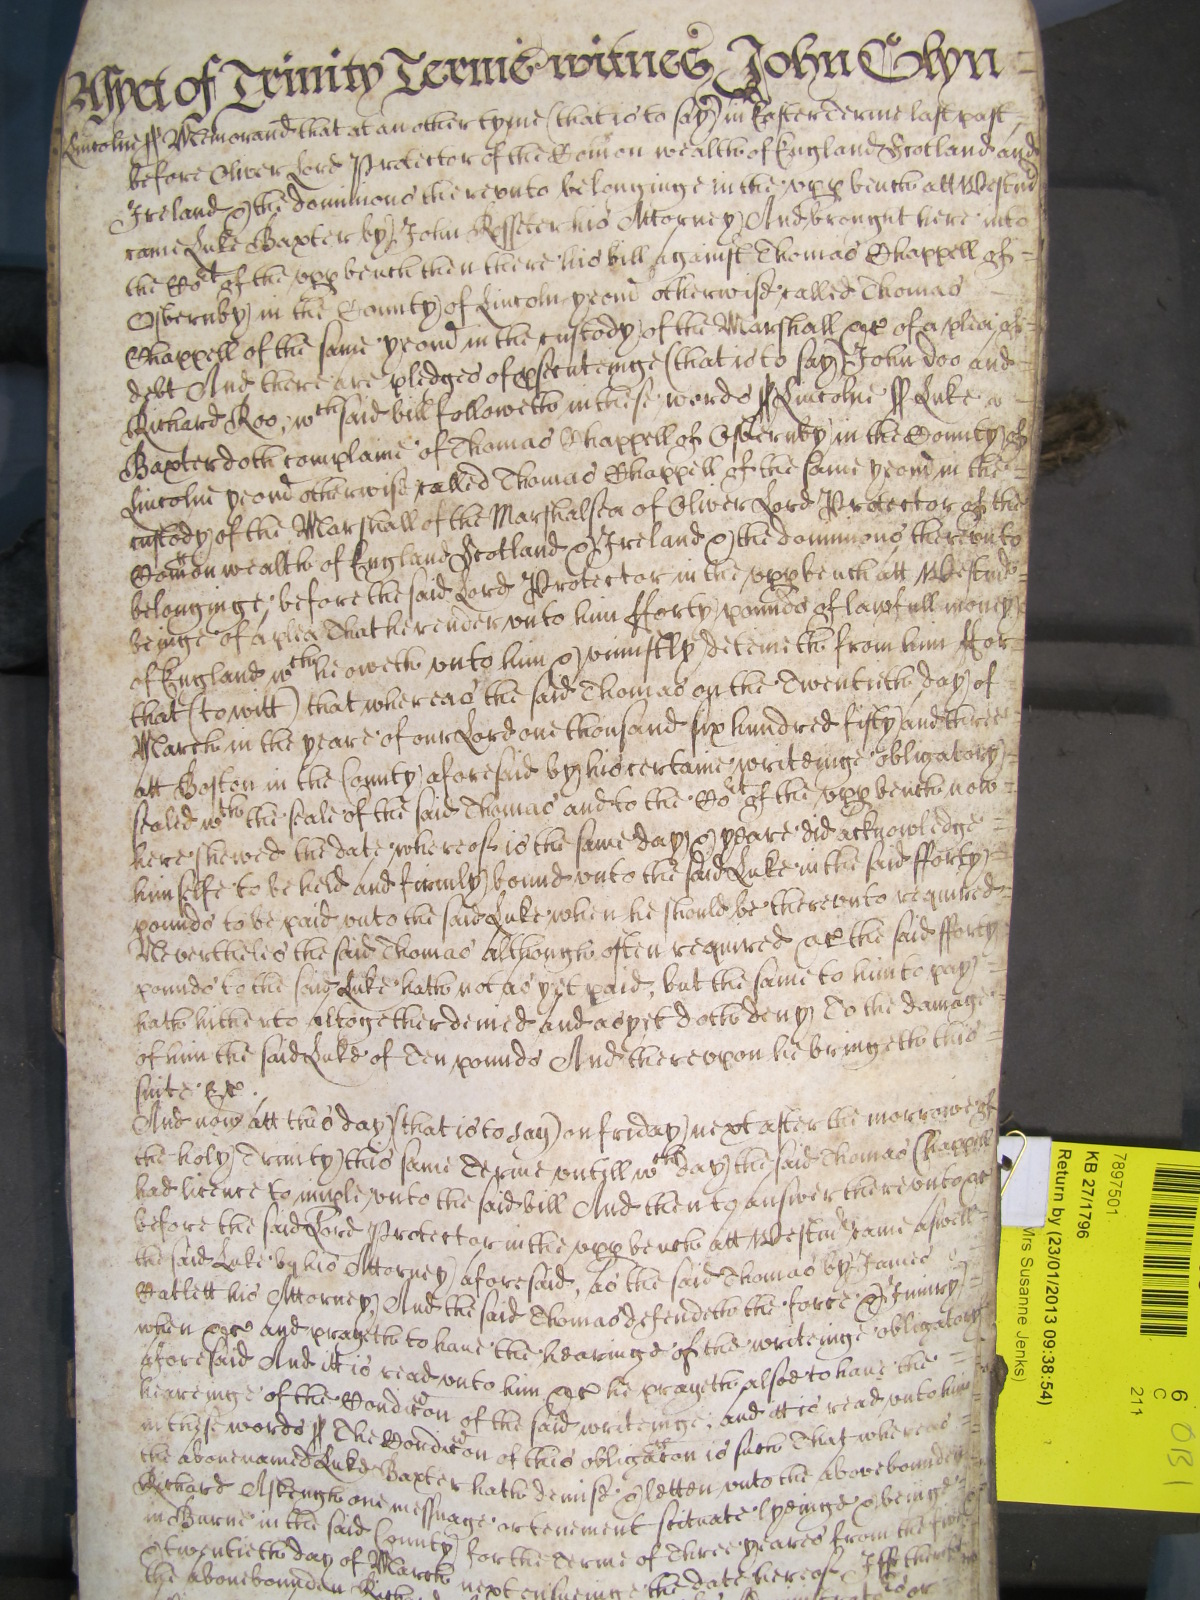 Asyet of Trinity Terme witnes John Glyn
Lincolne ss Memorand that at an other tyme (that is to say) in Easter terme last past
before Oliver Lord Protector of the Comon wealth of England Scotland and
Ireland & the dominions thereunto belonginge in the upp bench att Westmr
came Luke Baxter by John Rosseter his Attorney And brought here into
the Cort of the upp bench then there his bill against Thomas Chappell of
Osbernby in the County of Lincoln yeom otherwise called Thomas
Chappell of the same yeom in the custody of the Marshall &c of a plea of
debt And there are pledges of psecuteinge (that is to say) John Doo and
Richard Roo, wch said bill followeth in these words ss Lincolne ss Luke
Baxter doth complaine of Thomas Chappell of Osbernby in the County of
Lincolne yeom otherwise called Thomas Chappell of the same yeom in the
custody of the Marshall of the Marshalsea of Oliver Lord Protector of the
Comon wealth of England Scotland & Ireland & the dominions thereunto
belonginge, before the said Lord Protector in the upp bench att Westmr
beinge of a plea That he render unto him fforty pounds of lawfull money
of England wch he oweth unto him & uniustly deteineth from him ffor
that (to witt) that whereas the said Thomas on the Twentieth day of
March in the yeare of our Lord one thousand six hundred fifty and three
att Boston in the County aforesaid by his certaine writeinge obligatory
sealed wth the seale of the said Thomas and to the Cort of the upp bench now
here shewed the date whereof is the same day & yeare did acknowledge
himselfe to be held and firmly bound unto the said Luke in the said fforty
pounds to be paid unto the said Luke when he should be thereunto required
Neverthelesse the said Thomas although often required &c the said fforty
pounds to the said Luke hath not as yet paid, but the same to him to pay
hath hitherto altogether denied and as yet doth deny To the damage
of him the said Luke of Ten pounds And thereupon he bringeth this
suite &c.
And now att this day (that is to say) on friday next after the morrowe of
the holy Trinity this same Terme untill wch day the said Thomas Chappell
had licence to imple unto the said bill And then to answer thereunto &c
before the said Lord Protector in the upp bench att Westmr came aswell
the said Luke by his Attorney aforesaid, as the said Thomas by James
Catlett his Attorney, And the said Thomas defendeth the force & iniury
when &c and prayeth to have the hearinge of the writeinge obligatory
aforesaid And itt is read unto him &c he prayeth alsoe to have the
heareinge of the Condicon of the said writeinge, and itt is read unto him
in these words ss The Condicon of this obligacon is such That whereas
the abovenamed Luke Baxter hath demise & letten unto the abovebounden
Richard Askough one messuage or tenement scituate lyeinge & beinge
in Burne in the said County for the terme of Three yeares from the five
& twentieth day of March next ensueinge the date hereof If the
the abovebounden
7897501
KB 27/1796
Return by (23/01/2013 09:38:54)
Mrs Susanne Jenks)
6
C
211